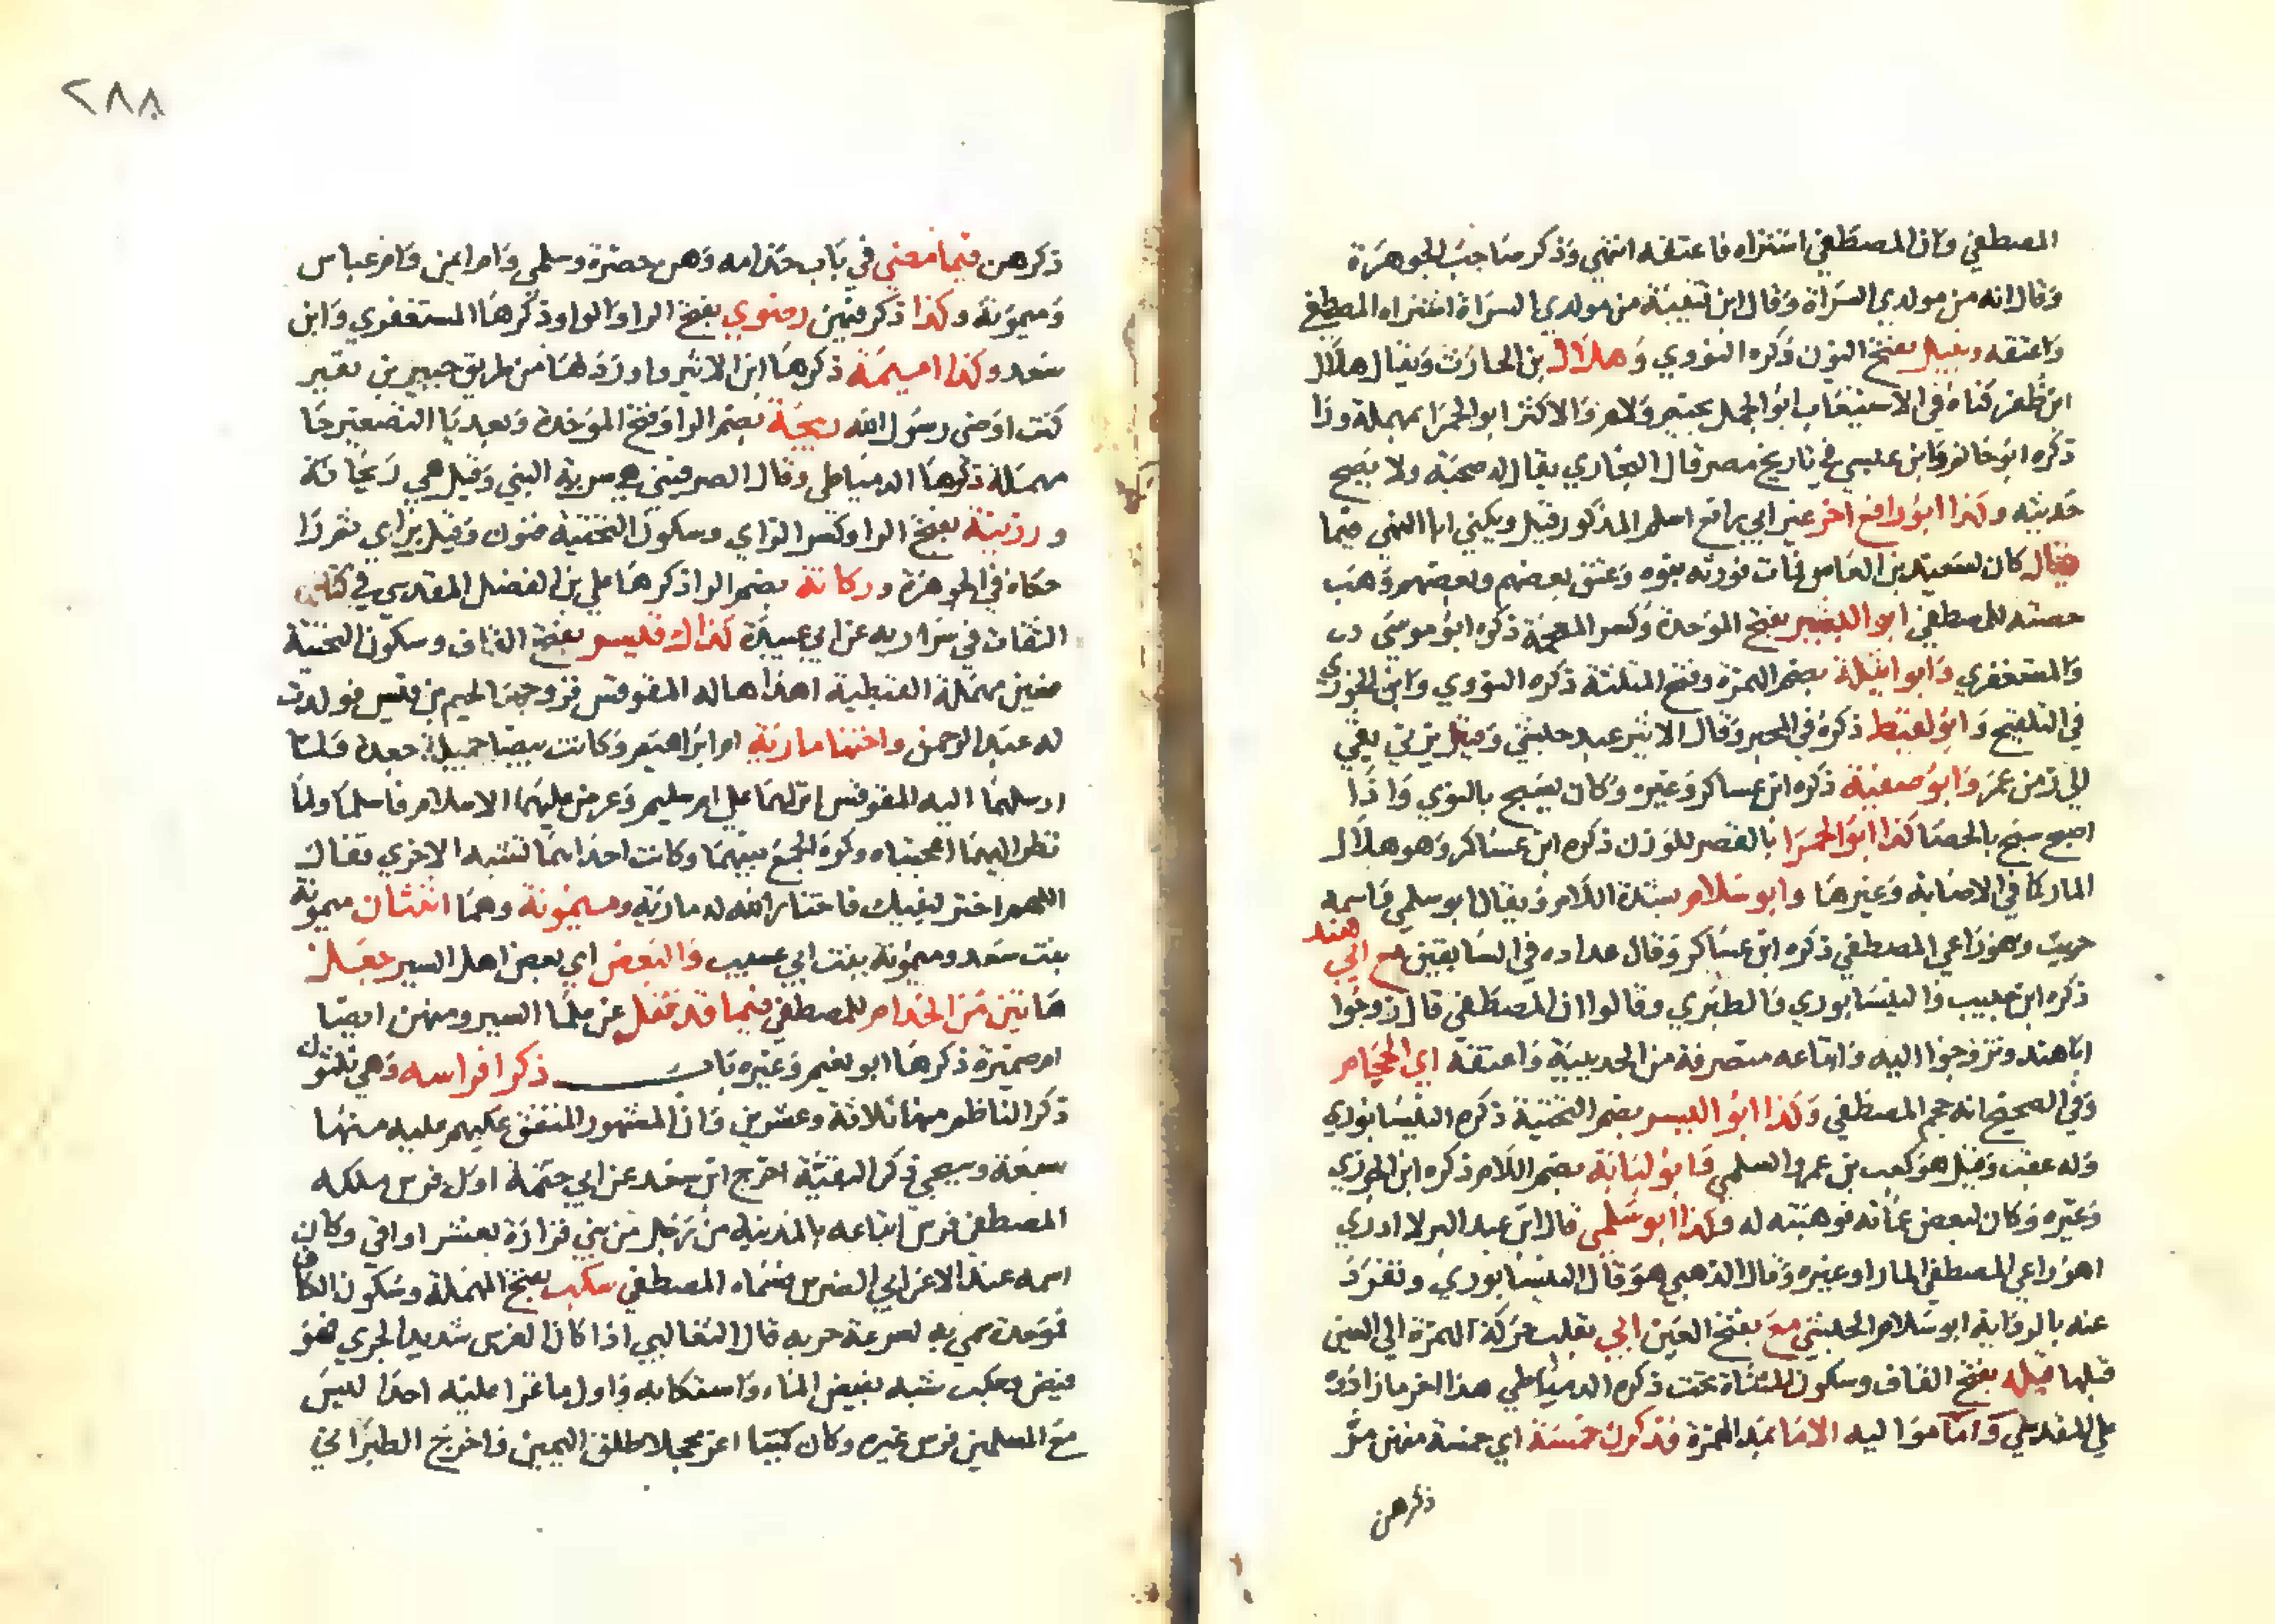 المصطفي وان المصطفي اشتراه فاعتقه انتهي وذكر صاحب الجوهرة
وقال انه من مولدي السراة وقال ابن قتيبة من مولدي السراة اشتراه المصطفي
واعتقه ونبيل بفتح النون ذكره النووي وهلال بن الحارث ويقال هلال
ابن ظفر كناه في الاستيعاب ابو الجمل بجيم ولام والاكثر ابو الحمرا بمهملة ورا
ذكره ابو حاتم وابن عيسي في تاريخ مصر قال البخاري يقال له صحبة ولا يصح
حديثه وكذا ابو رافع اخر غير ابي رافع اسلم المذكور قبل ويكني ابا البهي فيما
يقال كان لسعيد بن العاص فمات فورثه بنوه وعتق بعضهم وبعضهم وهب
حصته للمصطفي ابو البشير بفتح الموحدة وكسر المعجمة ذكره ابو موسي
والمستغفري وابو اثيلة بضم الهمزة وفتح المثلثة ذكره النووي وابن الجوزي
في التلقيح وابو لقيط ذكره في المحبر وقال الاثير عبد حبشي وقيل نوبي بقي
الي زمن عمر وابو صفية ذكره ابن عساكر وغيره وكان يسبح بالنوي واذا
اصبح سبح بالحصا كذا ابو الحمرا بالقصر للوزن ذكره ابن عساكر وهو هلال
المار كما في الاصابة وغيرها وابو سلام بشدة اللام ويقال ابو سلمي واسمه
حريث وهو راعي المصطفي ذكره ابن عساكر وقال عداده في السابقين مع ابي هند
ذكره ابن حبيب والنيسابوري والطبري وقالوا ان المصطفي قال زوجوا
ابا هند وتزوجوا اليه وابتاعه منصرفة من الحديبية واعتقه اي الحجام
وفي الصحيح انه حجم المصطفي وكذا ابو اليسر بضم التحتية ذكره النيسابوري
وله عقب وقيل هو كعب بن عمرو السلمي وابو لبابة بضم اللام ذكره ابن الجوزي
وغيره وكان لبعض عماته فوهبته له وكذا ابو سلمي قال ابن عبد البر لا ادري
اهو راعي المصطفي المار او غيره وقال الذهبي هو قال النيسابوري وتفرد
عنه بالرواية ابو سلام الحبشي مع بفتح العين ابي بقلب حركة الهمزة الي العين
قبلها قيله بفتح القاف وسكون المثناة تحت ذكره الدمياطي هذا اخر ما زاده
علي المقدسي واما مواليه الاما بمد الهمزة فذكرت خمسة اي خمسة مضين مر
ذكرهن
٢٨٨
ذكرهن فيما مضي في باب خدامه وهن خضرة وسلمي وام ايمن وام عباس
وميمونة وكذا ذكر فيهن رضوي بفتح الرا والواو وذكرها المستغفري وابن
سعد وكذا اميمة ذكرها ابن الاثير واورد لها من طريق جبير بن نفير
كنت اوضي رسول الله ربيحة بضم الرا وفتح الموحدة وبعد يا التصغير حا
مهملة ذكرها الدمياطي وقال الصرفيني هي سرية النبي وقيل هي ريحانة
ورزينة بفتح الرا وكسر الزاي وسكون التحتية فنون وقيل بزاي ثم را
حكاه في الجوهرة وركانة بضم الرا ذكرها علي بن الفضل المقدسي في كتابه
الثقات في سراريه عن ابي عبيدة كذاك قيسر بفتح القاف وسكون التحتية
فسين مهملة القبطية اهداها له المقوقس فزوجها لجهم بن قيس فولدت
له عبد الرحمن واختها مارية ام ابراهيم وكانت بيضا جميلة جعدة فلما
ارسلهما اليه المقوقس انزلهما علي ام سليم وعرض عليهما الاسلام فاسلما ولما
نظر اليهما اعجبتاه وكره الجمع بينهما وكانت احداهما تشبه الاخري فقال
اللهم اختر لنبيك فاختار الله له مارية وميمونة وهما اثنتان ميمونة
بنت سعد وميمونة بنت ابي عسيب والبعض اي بعض اهل السير جعل
هاتين من الخدام للمصطفي فيما قد نقل عن علما السير ومنهن ايضا
ام ضميرة ذكرها ابو نعيم وغيره باب ذكر افراسه وهي ثلثون
ذكر الناظم منها ثلاثة وعشرين وان المشهور المتفق عليهم عليه منها
سبعة وسيجي ذكر البقية اخرج ابن سعد عن ابي حثمة اول فرس ملكه
المصطفي فرس ابتاعه بالمدينة من رجل من بني فزارة بعشر اواقي وكان
اسمه عند الاعرابي الضرس فسماه المصطفي سكب بفتح المهملة وسكون الكاف
فوحدة سمي به لسرعة جريه قال الثعالبي اذا كان الفرس شديد الجري فهو
فيض وسكب شبه بفيض الماء وانسكابه واول ما غزا عليه احدا ليس
مع المسلمين فرس غيره وكان كميتا اغر محجلا طلق اليمين واخرج الطبراني